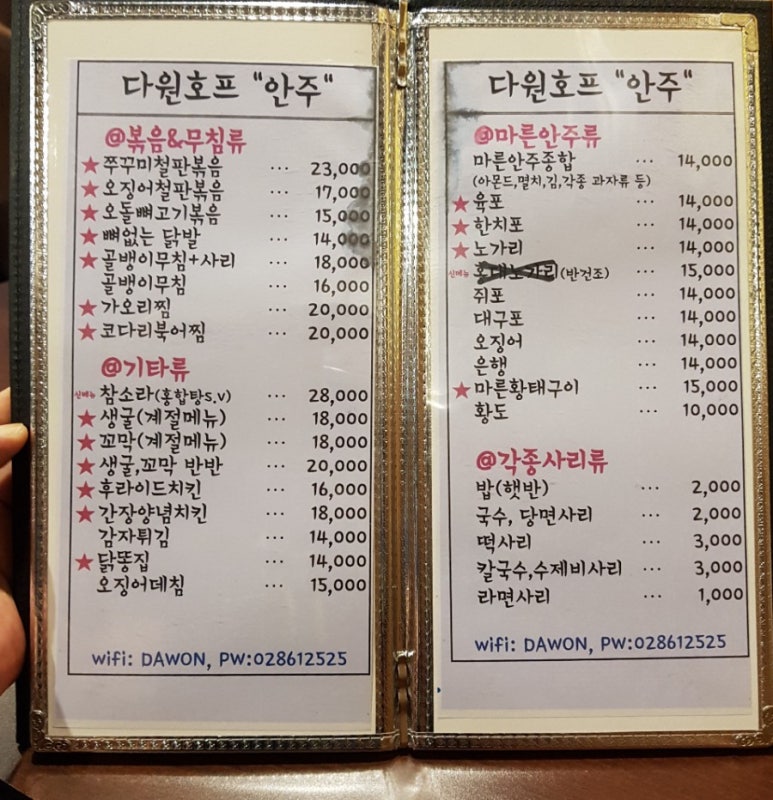 다원호프 "안주"
@볶음&무침류
★쭈꾸미철판볶음 ... 23,000
★오징어철판볶음 ... 17,000
★오돌뼈고기볶음 ... 15,000
★뼈없는 닭발 ... 14,000
★골뱅이무침+사리 ... 18,000
골뱅이무침 ... 16,000
★가오리찜 ... 20,000
★코다리북어찜 ... 20,000
@기타류
신메뉴 참소라(홍합탕S.V) ... 28,000
★생굴(계절메뉴) ... 18,000
★꼬막(계절메뉴) ... 18,000
★생굴,꼬막 반반 ... 20,000
★후라이드치킨 ... 16,000
★간장양념치킨 ... 18,000
감자튀김 ... 14,000
★닭똥집 ... 14,000
오징어데침 ... 15,000
wifi: DAWON, PW:028612525
다원호프 "안주"
@마른안주류
마른안주종합 ... 14,000
(아몬드,멸치,김,각종 과자류 등)
★육포 ... 14,000
★한치포 ... 14,000
★노가리 ... 14,000
신메뉴 (반건조) ... 15,000
쥐포 ... 14,000
대구포 ... 14,000
오징어 ... 14,000
은행 ... 14,000
★마른황태구이 ... 15,000
황도 ... 10,000
@각종사리류
밥(햇반) ... 2,000
국수, 당면사리 ... 2,000
떡사리 ... 3,000
칼국수,수제비사리 ... 3,000
라면사리 ... 1,000
wifi: DAWON, PW:028612525